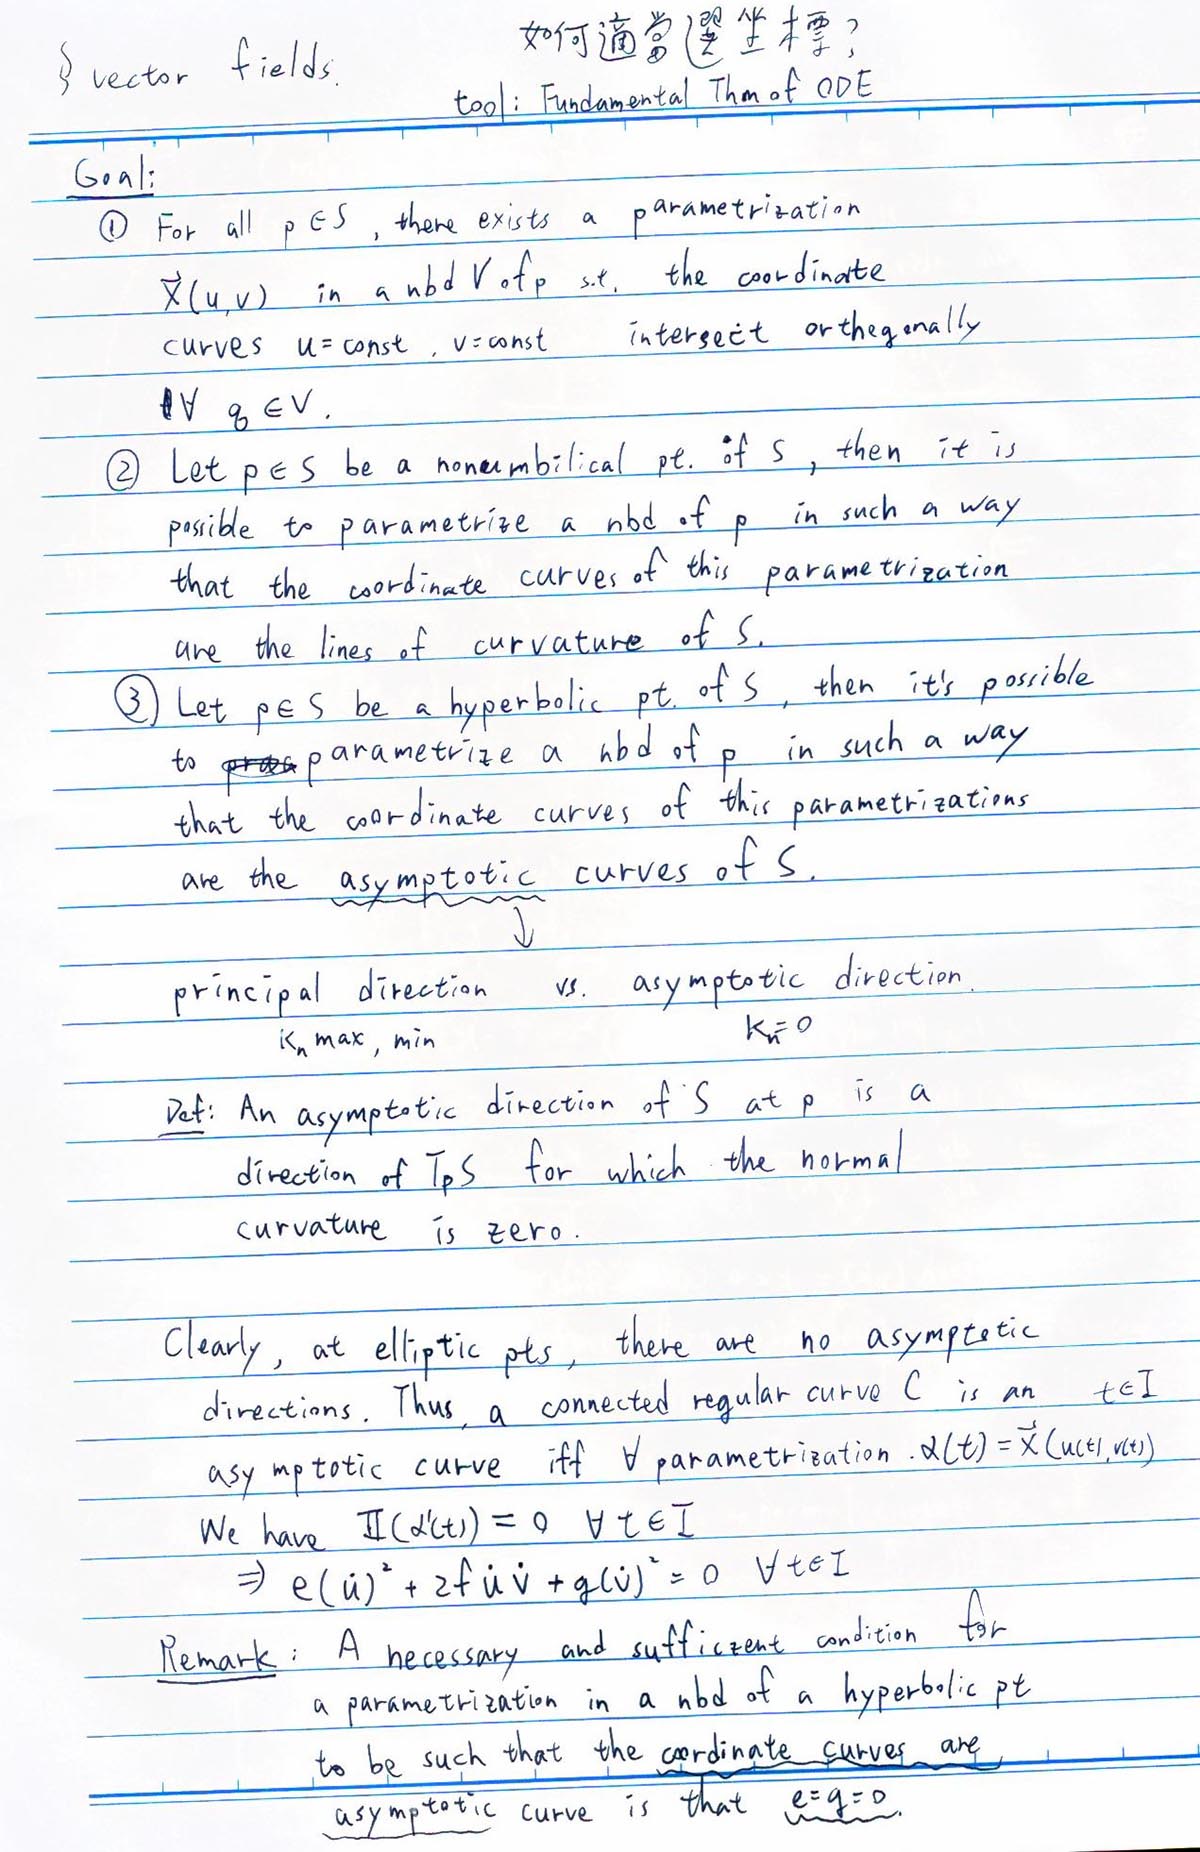 § vector fields.
如何適當選坐標?
tool: Fundamental Thm of ODE
Goal:
① For all p∈S, there exists a parametrization
X⃗(u,v) in a nbd V of p s.t. the coordinate
curves u=const, v=const intersect orthegonally
∀ q∈V.
② Let p∈S be a nonumbilical pt. of S, then it is
possible to parametrize a nbd of p in such a way
that the coordinate curves of this parametrization
are the lines of curvature of S.
③ Let p∈S be a hyperbolic pt. of S, then it's possible
to parametrize a nbd of p in such a way
that the coordinate curves of this parametrizations
are the asymptotic curves of S.
↓
principal direction vs. asymptotic direction.
Kₙ max, min Kₙ=0
Def: An asymptotic direction of S at p is a
direction of TₚS for which the normal
curvature is zero.
Clearly, at elliptic pts, there are no asymptotic
directions. Thus, a connected regular curve C is an t∈I
asymptotic curve iff ∀ parametrization. α(t)=X⃗(u(t),v(t))
We have II(α'(t))=0 ∀t∈I
⇒ e(u̇)²+2fu̇v̇+g(v̇)²=0 ∀t∈I
Remark: A necessary and sufficient condition for
a parametrization in a nbd of a hyperbolic pt
to be such that the coordinate curves are
asymptotic curve is that e=g=0.